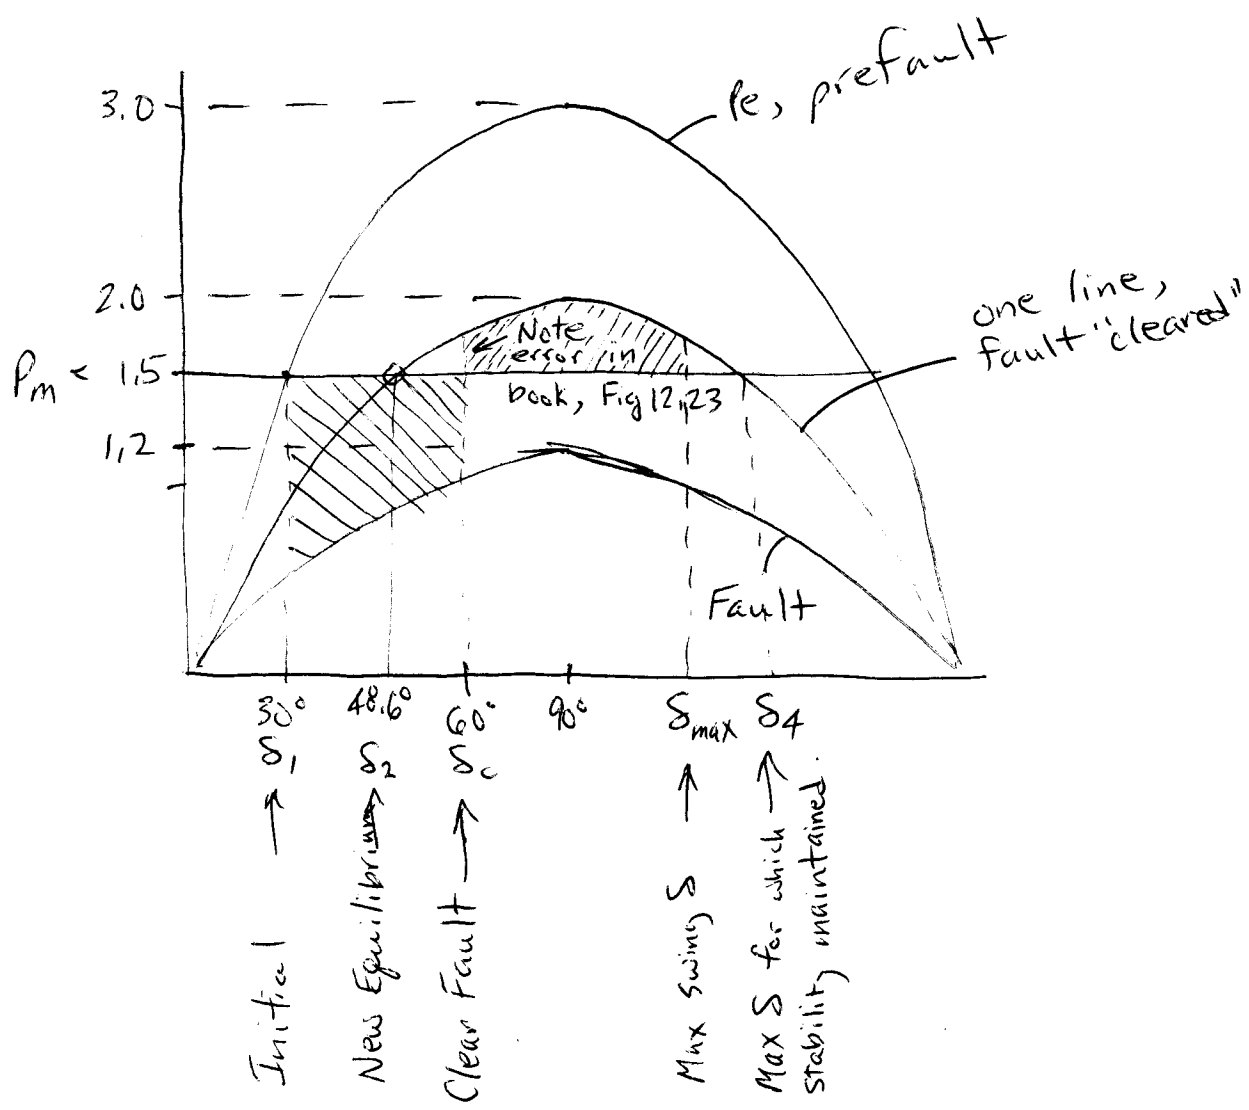 Pe, prefault
3.0
2.0
one line,
fault "cleared"
Note
error in
book, Fig 12.23
Pm < 1.5
1.2
Fault
30°
48.6°
60°
90°
δmax
δ4
δ1
δ2
δc
Initial →
New Equilibrium →
Clear Fault →
Max swing δ →
Max δ for which →
stability maintained.